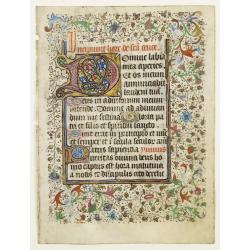 Incipiunt hore de sca cruce.
Domine labia
mea aperies
Et os meum
annunciabit
laudem tuā.
Deus in adiutorium meum
intende. Domine ad adiuvan
dum me festina. Gloria pa
tri et filio et spiritui sancto.
Sicut erat in principio et nunc
et semper et in secula seculor am
Patris sapientia ymnus
veritas divina deus ho
mo captus est hora matutina
a notis discipulis cito derelic